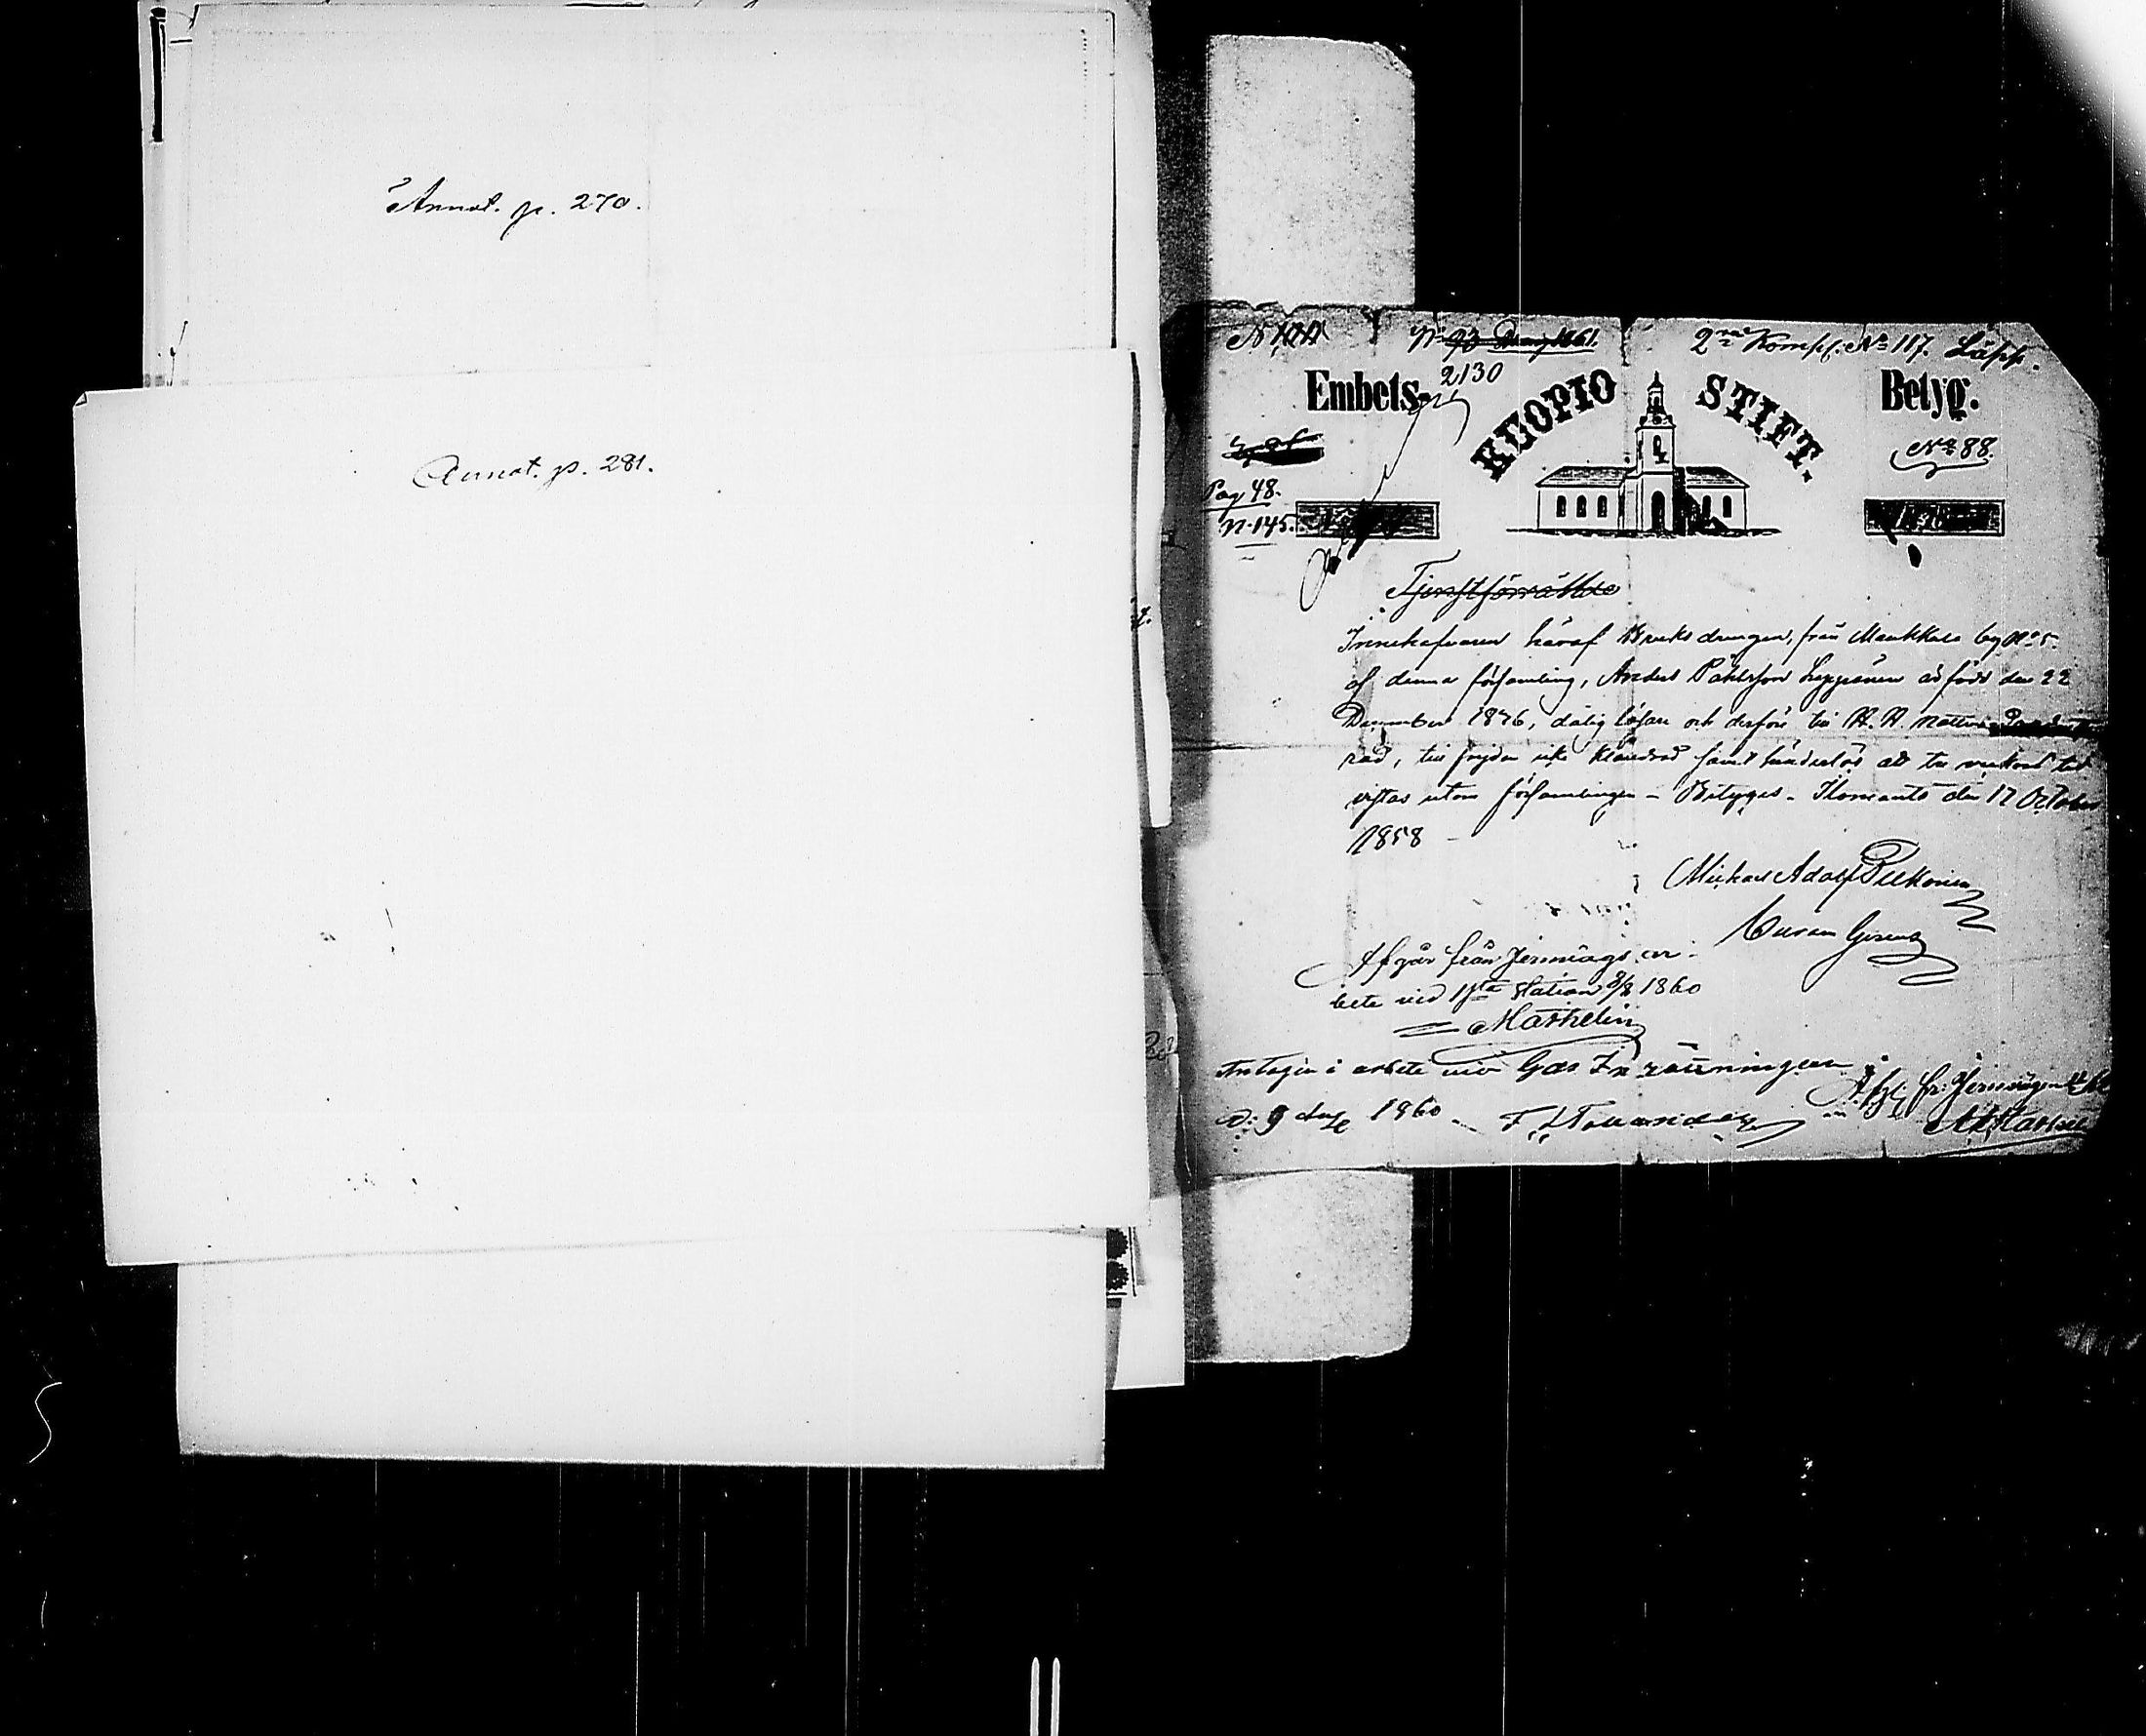 Annot. p. 270.
Annot. p. 281.
2ne Komp. No 117. Läpp.
2130
Embets-
KUOPIO STIFT.
Betyg.
No 88.
Pag 48.
N. 145.
Tjenstförrättde
Innehafvaren häraf Bruks drengen, från Maukkula by No 5.
af denna församling, Anders Påhlsson Leppänen är född den 22
December 1876, dålig läsare och derföre till H. H. Nattv
rad, till frejden icke klandrad samt hinderlös att
vistas utom församlingen - Betygas - Ilomants den 17 October
1858
Michael Adolf Pelkonen
Curam Gerens
Afgår från Jernvägs ar-
bete vid station 8/8 1860
Maskelin
Antagen i arbete vid Gas Inrättningen
d: 9 Aug 1860 -
fr: Jernvägen